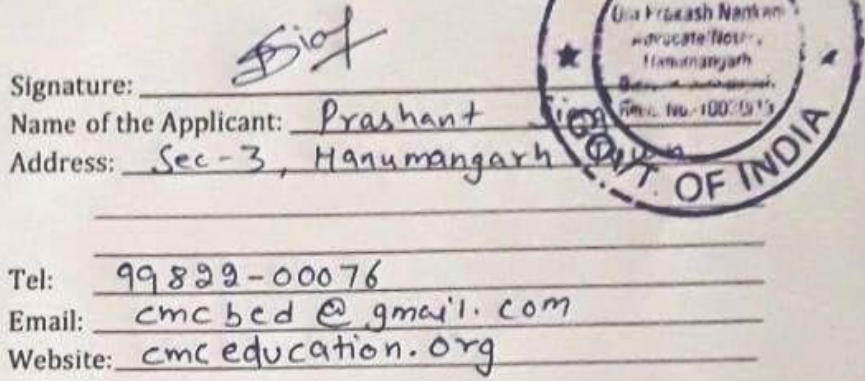 Signature:
Name of the Applicant: Prashant
Address: Sec-3, Hanumangarh
Tel: 99822-00076
Email: cmcbed@gmail.com
Website: cmceducation.org
Hanumangarh
GOVT. OF INDIA